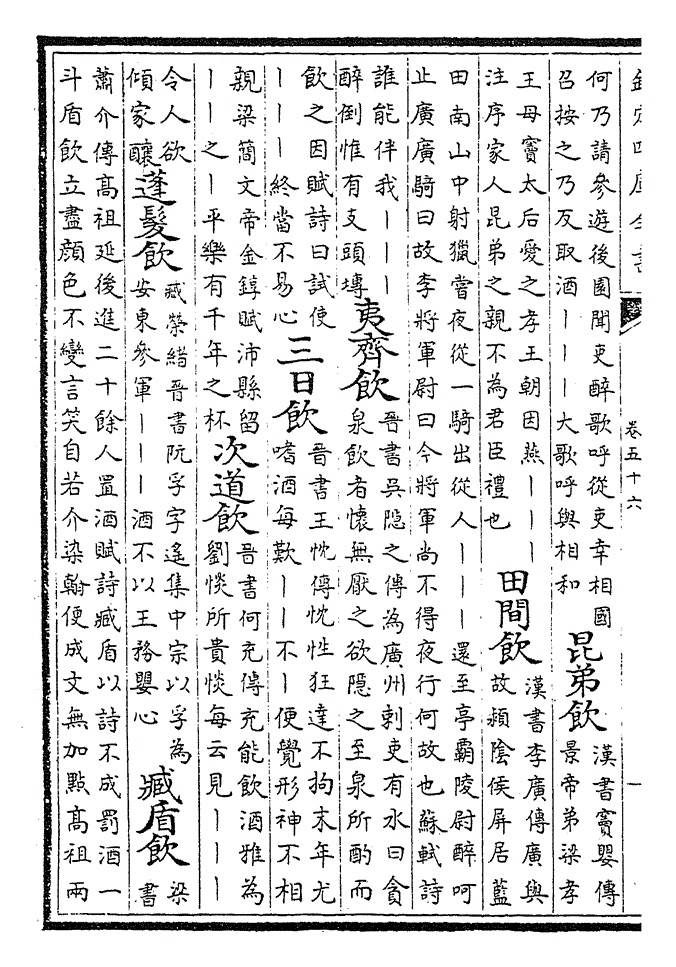 欽定四庫全書
卷五十六
一
何乃請參遊後園聞吏醉歌呼從吏幸相國
召按之乃反取酒丨丨丨大歌呼與相和
昆弟飲
漢書竇嬰傳
景帝弟梁孝
王母竇太后愛之孝王朝因燕丨丨丨
注序家人昆弟之親不為君臣禮也
田間飲
漢書李廣傳廣與
故潁陰侯屏居藍
田南山中射獵嘗夜從一騎出從人丨丨丨還至亭霸陵尉醉呵
止廣廣騎曰故李將軍尉曰今將軍尚不得夜行何故也蘇軾詩
誰能伴我丨丨丨
醉倒惟有支頭塼
夷齊飲
晉書吳隠之傳為廣州刺吏有水曰貪
泉飲者懷無厭之欲隠之至泉所酌而
飲之因賦詩曰試使
丨丨丨終當不易心
三日飲
晉書王忱傳忱性狂達不拘末年尤
嗜酒每歎丨丨不丨便覺形神不相
親梁簡文帝金錞賦沛縣留
丨丨之丨平樂有千年之杯
次道飲
晉書何充傳充能飲酒雅為
劉惔所貴惔每云見丨丨丨
令人欲
傾家釀
蓬髮飲
臧榮緒晉書阮孚字遙集中宗以孚為
安東參軍丨丨丨酒不以王務嬰心
臧盾飲
梁
書
蕭介傳髙祖延後進二十餘人置酒賦詩臧盾以詩不成罰酒一
斗盾飲立盡顔色不變言笑自若介染翰便成文無加點髙祖兩